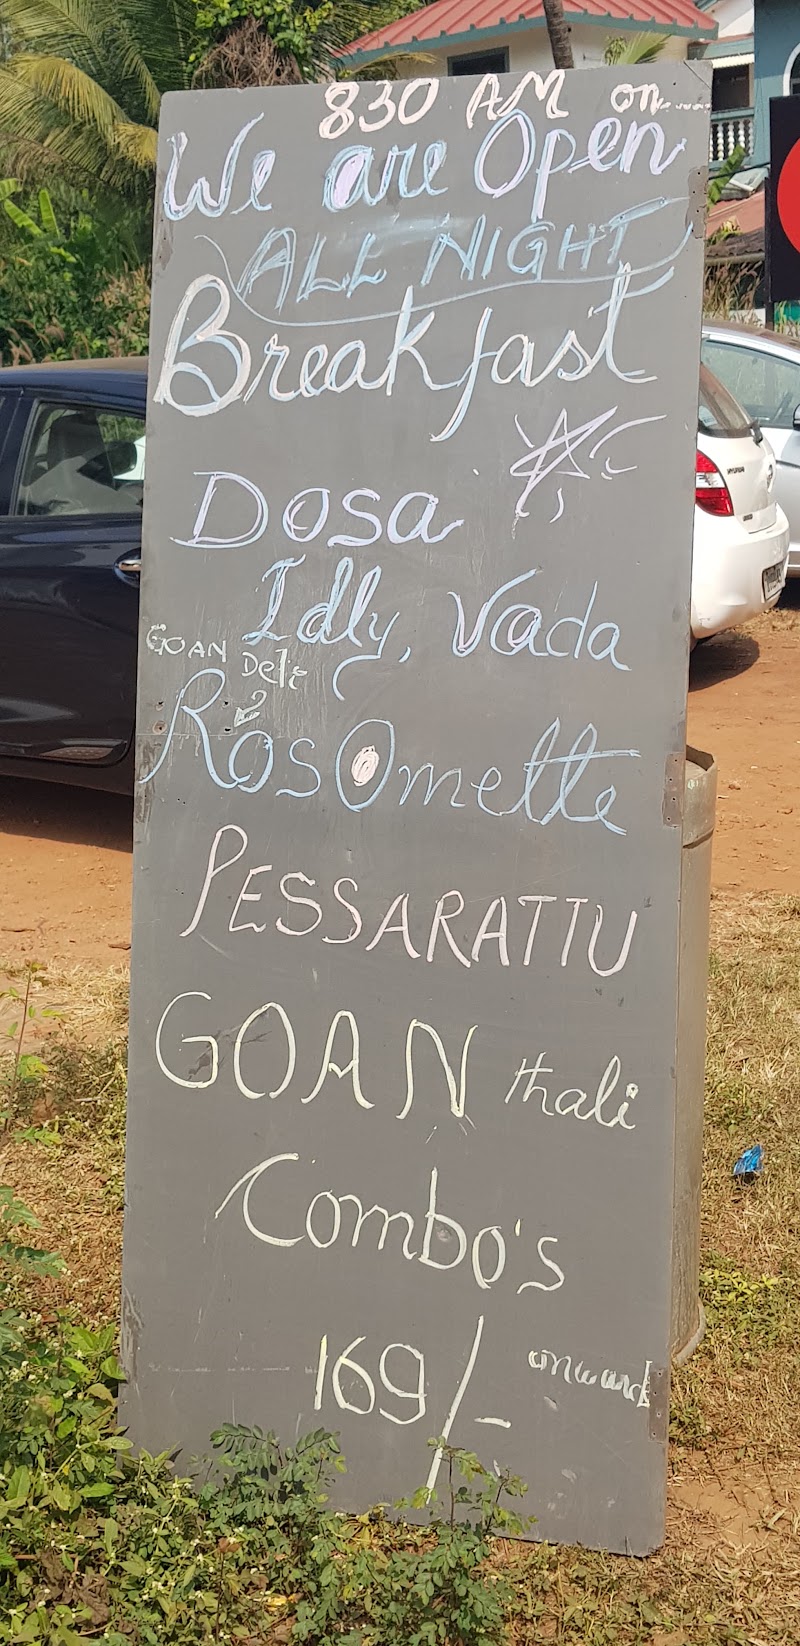 830 AM on......
We are Open
ALL NIGHT
Breakfast
Dosa
Idly, Vada
GOAN Deli
RosOmette
PESSARATTU
GOAN thali
Combo's
169/-
onward